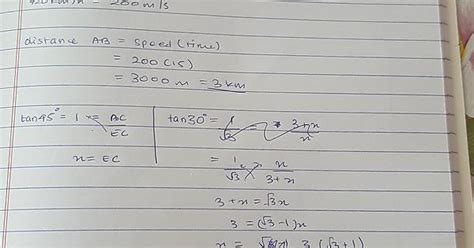 = 200 m/s
distance AB = speed (time)
= 200 (15)
= 3000 m = 3 km
tan45° = 1 = AC/EC
x = EC
tan30° = 1/√3 = 3+x/x
= 1/√3 x/3+x
3+x = √3x
3 = (√3-1)x
x = 3(√3+1)